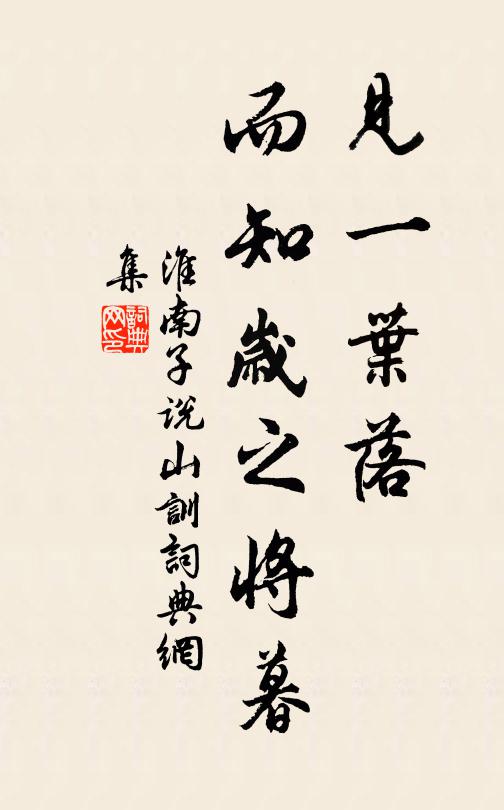 見一葉落
而知歲之將暮
淮南子说山訓詞典網
集
詞典
网印